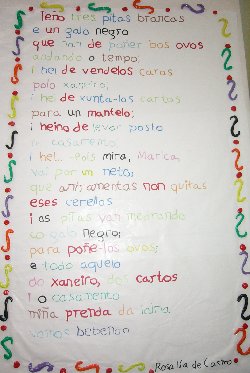 Teño tres pitas brancas
e un galo negro
que han de poñer bos ovos
andando o tempo.
i hei de vendelos caros
polo xaneiro,
i hei de xunta-los cartos
para un mantelo;
i heino de levar posto
no casamento
i hei... -Pois mira, Marica,
vai por un neto,
que antramentas non quitas
eses cerellos
i as pitas van medrando
co galo negro,
para poñe-los ovos,
e todo aquelo
do xaneiro, dos cartos
i o casamento
miña prenda da ialma,
vamos bebendo
Rosalía de Castro